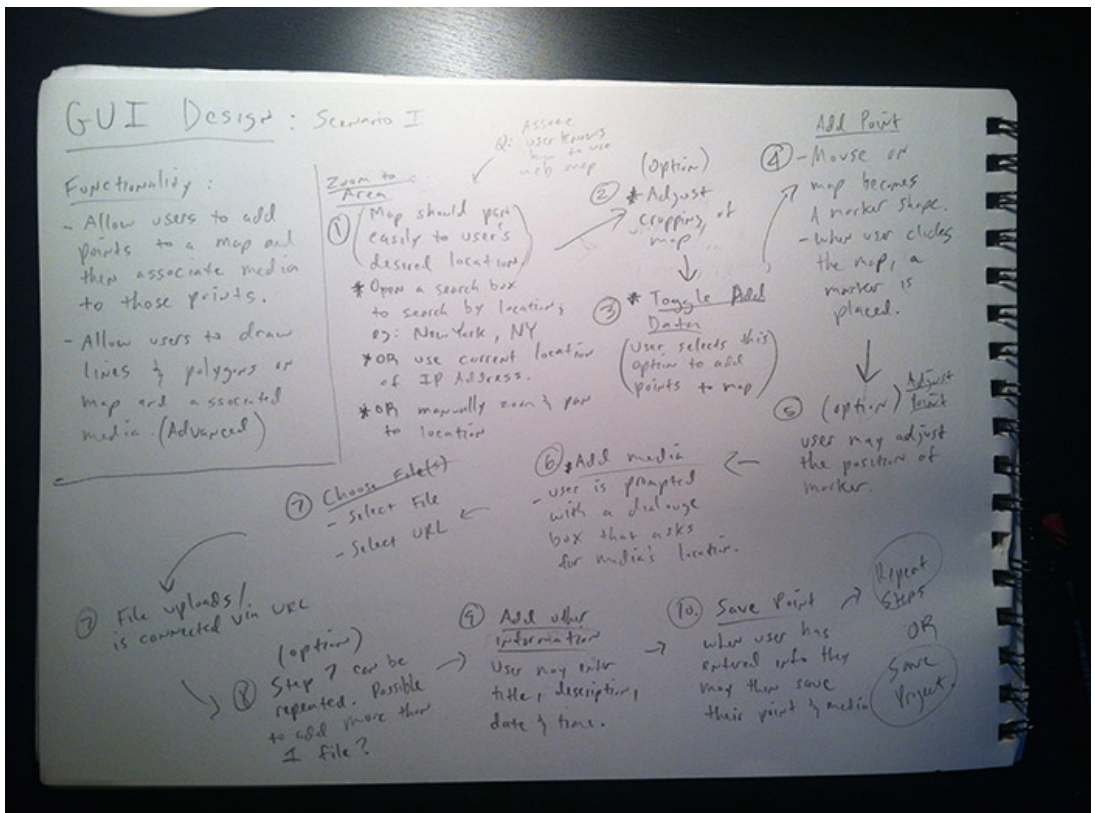 GUI Design : Scenario I
Functionality :
- Allow users to add
points to a map and
then associate media
to those points.
- Allow users to draw
lines & polygons on
map and associated
media. (Advanced)
Assume
Q: user knows
how to use
web map
Zoom to
Area
① (Map should pan
easily to user's
desired location)
* Open a search box
to search by location;
eg: New York, NY
* OR use current location
of IP Address.
* OR manually zoom & pan
to location
(option)
② * Adjust
cropping of
map
③ * Toggle Add
Data
(User selects this
option to add
points to map)
Add Point
④ - Mouse on
map becomes
A marker shape.
- when user clicks
the map, a
marker is
placed.
⑤ (option) Adjust
Point
user may adjust
the position of
marker.
⑥ * Add media
- user is prompted
with a dialouge
box that asks
for media's location.
⑦ Choose File(s)
- Select File
- Select URL
⑦ File uploads/
is connected via URL
(option)
⑧ Step 7 can be
repeated. Possible
to add more than
1 file?
⑨ Add other
information
User may enter
title, description,
date & time.
⑩. Save Point
when user has
entered info they
may then save
their point & media
Repeat
Steps
OR
Save
Project.